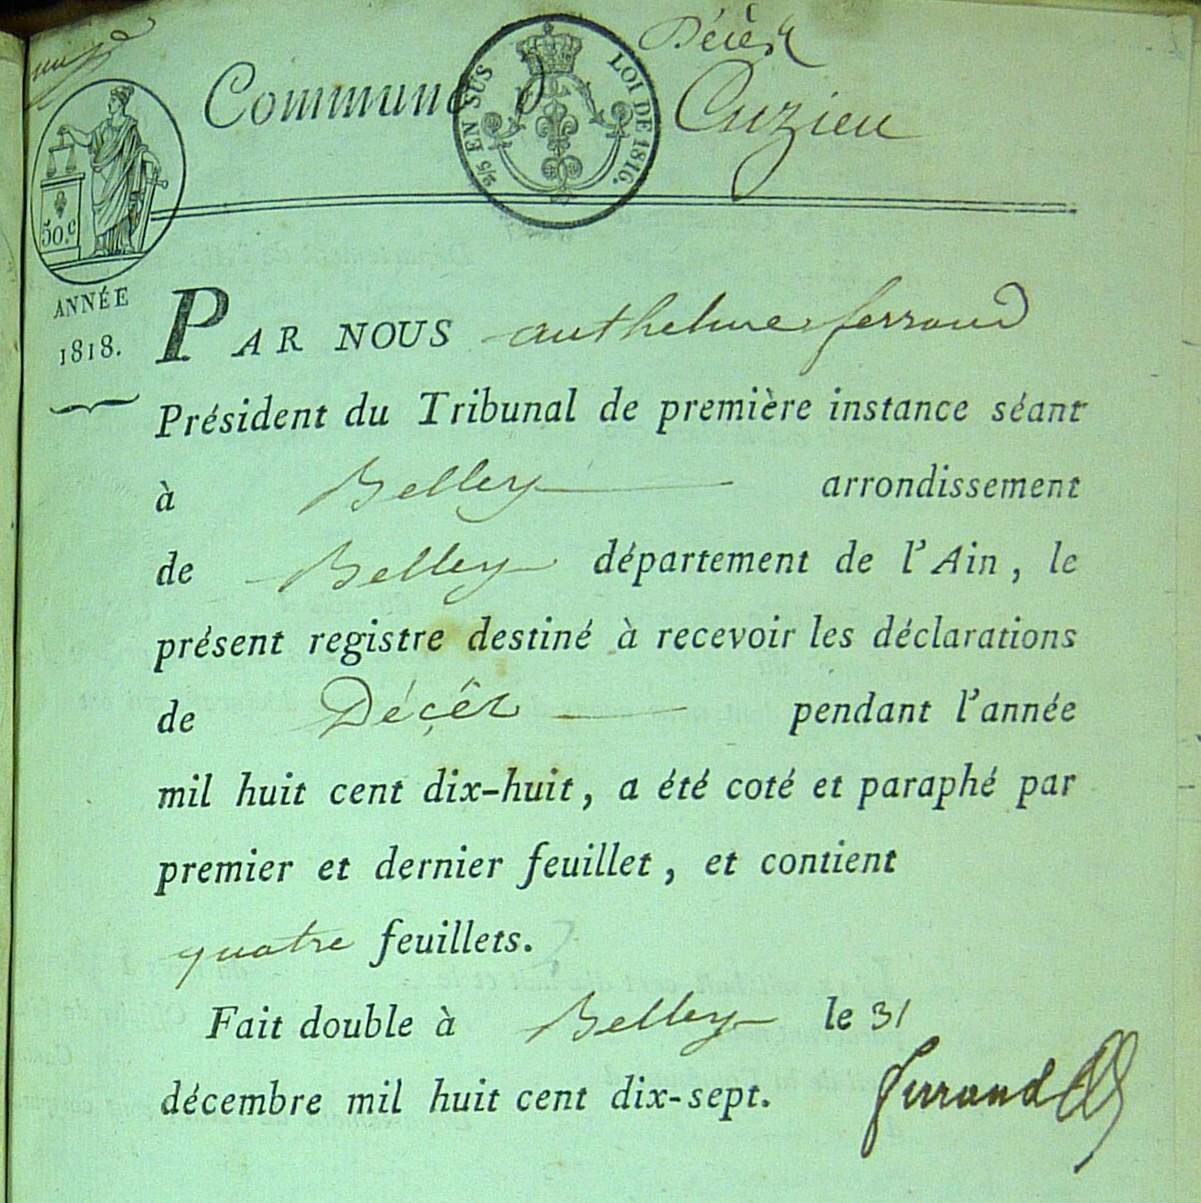 Décès
Commune d
2/5 EN SUS
LOI DE 1816.
Cuzieu
50.c
ANNÉE
1818.
PAR NOUS anthelme ferrand
Président du Tribunal de première instance séant
à Belley arrondissement
de Belley département de l'Ain, le
présent registre destiné à recevoir les déclarations
de Décès pendant l'année
mil huit cent dix-huit, a été coté et paraphé par
premier et dernier feuillet, et contient
quatre feuillets.
Fait double à Belley le 31
décembre mil huit cent dix-sept.
ferrand